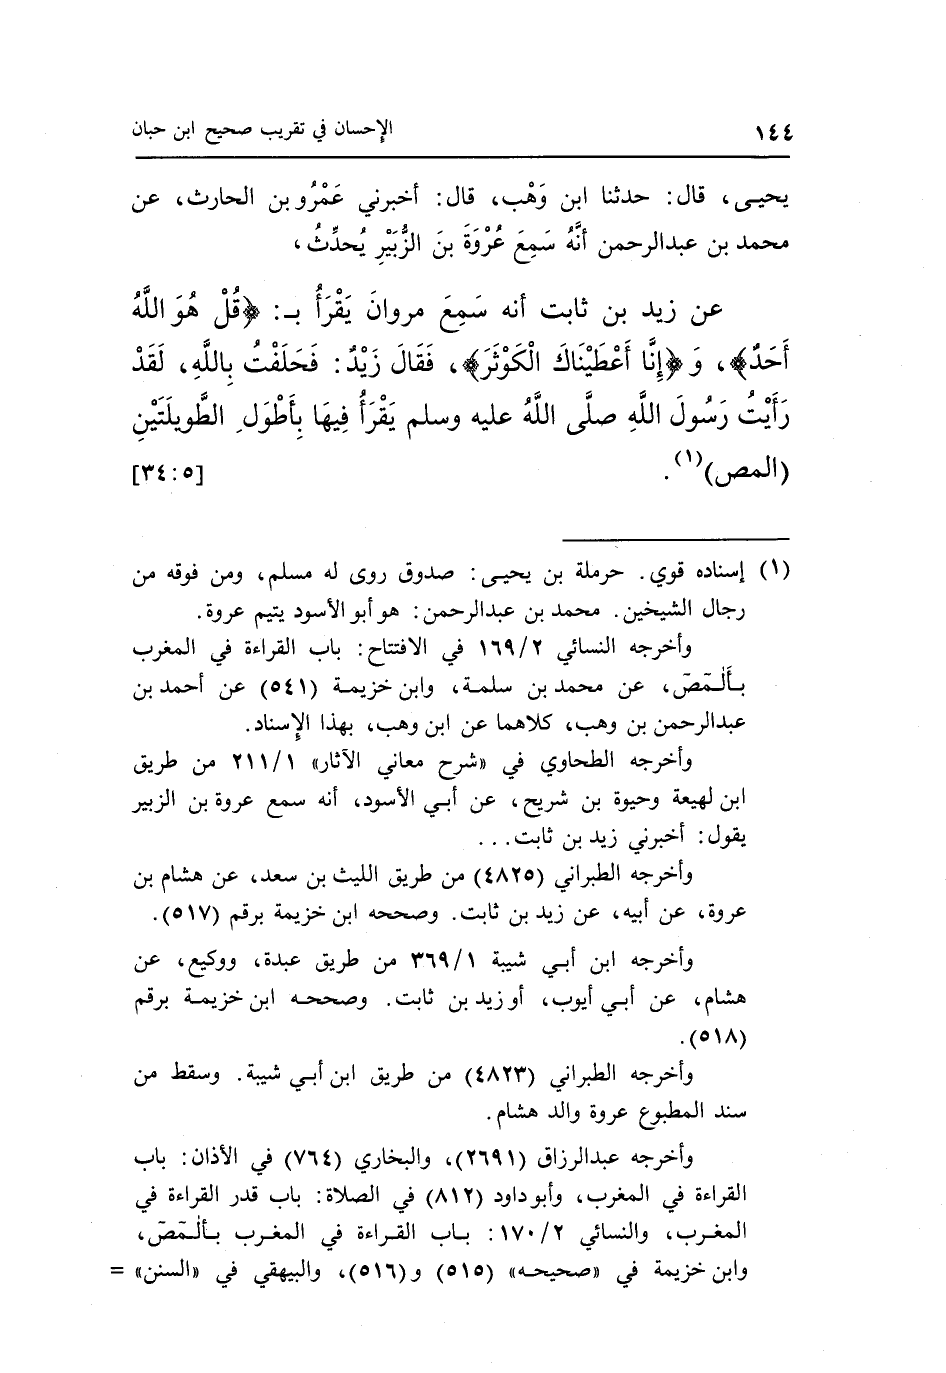 ١٤٤ الإحسان في تقريب صحيح ابن حبان
يحيـى، قال: حدثنا ابن وَهْب، قال: أخبرني عَمْرُو بن الحارث، عن
محمد بن عبدالرحمن أنَّهُ سَمِعَ عُرْوَةَ بنَ الزُّبَيْرِ يُحدِّثُ،
عن زيد بن ثابت أنه سَمِعَ مروانَ يَقْرَأُ بـ: ﴿قُلْ هُوَ اللَّهُ
أَحَدٌ﴾، وَ ﴿إِنَّا أَعْطَيْنَاكَ الْكَوْثَرَ﴾، فَقَالَ زَيْدٌ: فَحَلَفْتُ بِاللَّهِ، لَقَدْ
رَأَيْتُ رَسُولَ اللَّهِ صلَّى اللَّهُ عليه وسلم يَقْرَأُ فِيهَا بِأَطْوَلِ الطَّوِيلَتَيْنِ
(المص)(١). [٣٤:٥]
(١) إسناده قوي. حرملة بن يحيـى: صدوق روى له مسلم، ومن فوقه من
رجال الشيخين. محمد بن عبدالرحمن: هو أبو الأسود يتيم عروة.
وأخرجه النسائي ١٦٩/٢ في الافتتاح: باب القراءة في المغرب
بـألـٓمٓصٓ، عن محمد بن سلمة، وابن خزيمة (٥٤١) عن أحمد بن
عبدالرحمن بن وهب، كلاهما عن ابن وهب، بهذا الإسناد.
وأخرجه الطحاوي في «شرح معاني الآثار» ٢١١/١ من طريق
ابن لهيعة وحيوة بن شريح، عن أبـي الأسود، أنه سمع عروة بن الزبير
يقول: أخبرني زيد بن ثابت...
وأخرجه الطبراني (٤٨٢٥) من طريق الليث بن سعد، عن هشام بن
عروة، عن أبيه، عن زيد بن ثابت. وصححه ابن خزيمة برقم (٥١٧).
وأخرجه ابن أبـي شيبة ٣٦٩/١ من طريق عبدة، ووكيع، عن
هشام، عن أبـي أيوب، أو زيد بن ثابت. وصححـه ابن خزيمـة برقم
(٥١٨).
وأخرجه الطبراني (٤٨٢٣) من طريق ابن أبـي شيبة. وسقط من
سند المطبوع عروة والد هشام.
وأخرجه عبدالرزاق (٢٦٩١)، والبخاري (٧٦٤) في الأذان: باب
القراءة في المغرب، وأبو داود (٨١٢) في الصلاة: باب قدر القراءة في
المغـرب، والنسائي ١٧٠/٢: بـاب القـراءة في المغـرب بـألـٓمٓصٓ،
وابن خزيمة في «صحيحـه» (٥١٥) و (٥١٦)، والبيهقي في «السنن» =